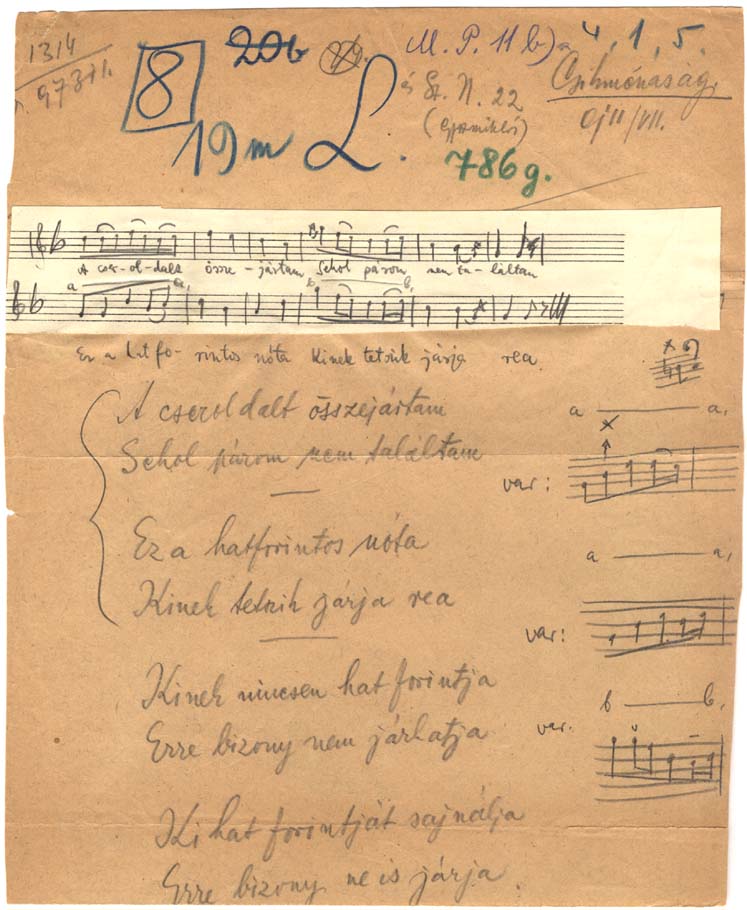 1314
8
20b
M. P. 11 b) a
4, 1, 5.
és Sz. N. 22
19m
L.
786g.
A cser-ol-dalt össze-jártam Sehol párom nem ta-láltam
a a,
b b,
Ez a hatfo-rintos nóta Kinek tetszik járja rea
A cseroldalt összejártam
Sehol párom nem találtam
a a,
var:
Ez a hatforintos nóta
Kinek tetszik járja rea
a a,
var:
Kinek nincsen hat forintja
Erre bizony nem járhatja
b b,
var.
Ki hat forintját sajnálja
Erre bizony ne is járja.